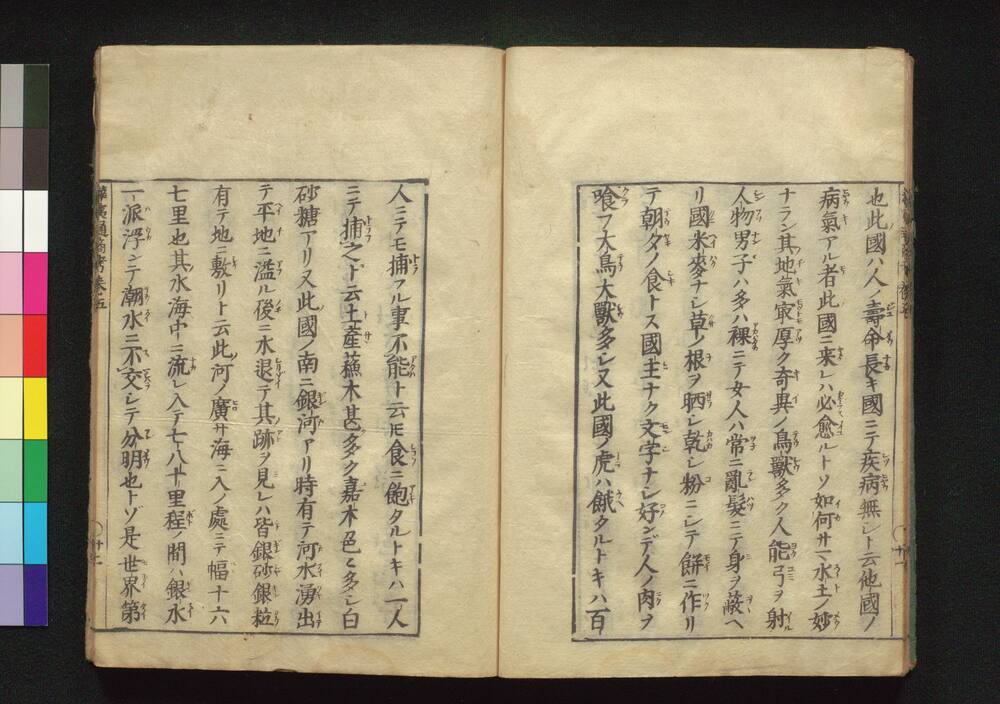 也此國ハ人ノ壽命長キ國ニテ疾病無シト云他國ノ
病氣アル者此國ニ來レハ必愈ルトソ如何サマ水土ノ妙
ナラン其地氣㝡厚ク奇異ノ鳥獸多ク人能弓ヲ射
人物男子ハ多ハ裸ニテ女人ハ常ニ亂髮ニテ身ヲ蔽ヘ
リ國米麥ナシ草ノ根ヲ晒シ乾シ粉ニシテ餅ニ作リ
テ朝夕ノ食トス國主ナク文字ナシ好ンデ人ノ肉ヲ
喰フ大鳥大獸多シ又此國ノ虎ハ餓タルトキハ百
人ニテモ捕フル事不能ト云𪜈食ニ飽タルトキハ一人
ニテ捕之ト云土產蘓木甚多ク嘉木色々多シ白
砂糖アリ又此國ノ南ニ銀河アリ時有テ河水湧出
テ平地ニ溢ル後ニ水退テ其跡ヲ見レハ皆銀砂銀粒
有テ地ニ敷リト云此河ノ廣サ海ニ入ノ處ニテ幅十六
七里也其水海中ニ流レ入テ七八十里程ノ間ハ銀水
一派浮ンテ潮水ニ不交シテ分明也トゾ是世界第
華夷通商考卷五
十二